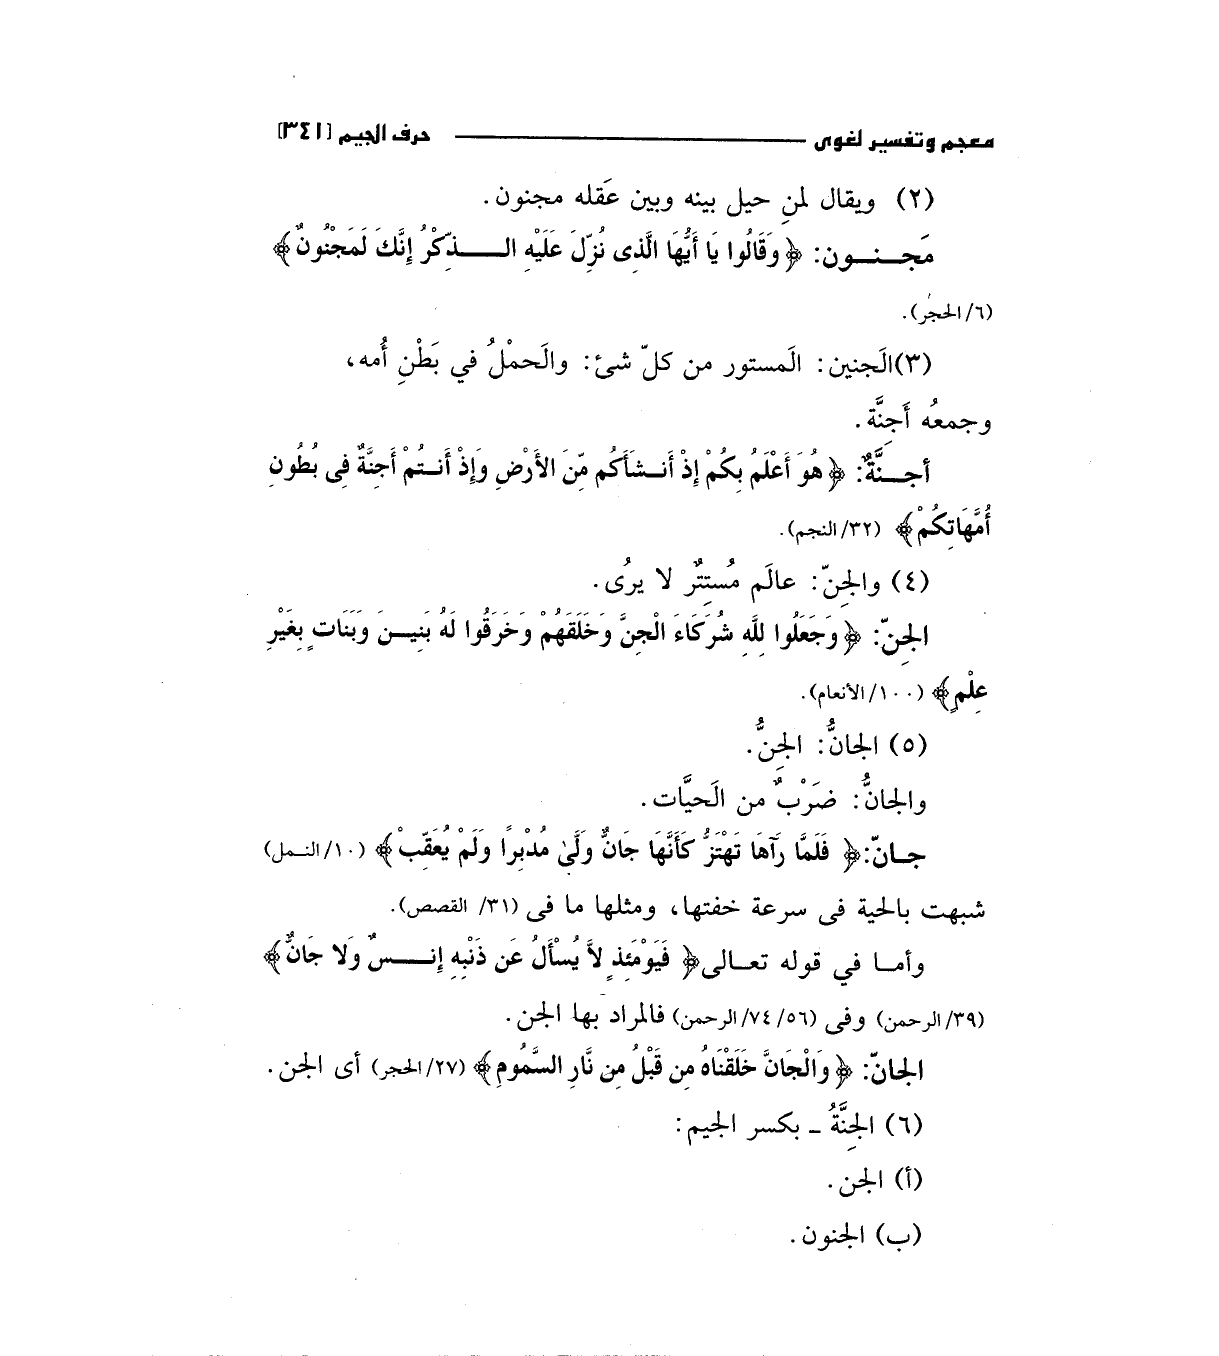 معجم وتفسير لغوى حرف الجيم [٣٤١]
(٢) ويقال لمن حيل بينه وبين عَقله مجنون.
مَجنون: ﴿وَقَالُوا يَا أَيُّهَا الَّذِى نُزِّلَ عَلَيْهِ الذِّكْرُ إِنَّكَ لَمَجْنُونٌ﴾
(٦/الحجر).
(٣)الَجنين: الَمستور من كلّ شئ: والَحمْلُ في بَطْنِ أُمه،
وجمعُه أَجِنَّة.
أجنَّةٌ: ﴿هُوَ أَعْلَمُ بِكُمْ إِذْ أَنشَأَكُم مِّنَ الأَرْضِ وَإِذْ أَنتُمْ أَجِنَّةٌ فِى بُطُونِ
أُمَّهَاتِكُمْ﴾ (٣٢/النجم).
(٤) والجِنّ: عالَم مُستِترٌ لا يرُى.
الجِنّ: ﴿وَجَعَلُوا لِلَّهِ شُرَكَاءَ الْجِنَّ وَخَلَقَهُمْ وَخَرَقُوا لَهُ بَنِينَ وَبَنَاتٍ بِغَيْرِ
عِلْمٍ﴾ (١٠٠/الأنعام).
(٥) الجانُّ: الجِنُّ.
والجانُّ: ضَرْبٌ من الَحيَّات.
جانّ:﴿فَلَمَّا رَآهَا تَهْتَزُّ كَأَنَّهَا جَانٌّ وَلَّىٰ مُدْبِراً وَلَمْ يُعَقِّبْ﴾ (١٠/النمل)
شبهت بالحية فى سرعة خفتها، ومثلها ما فى (٣١/ القصص).
وأما في قوله تعالى﴿فَيَوْمَئِذٍ لاَّ يُسْأَلُ عَن ذَنْبِهِ إِنسٌ وَلا جَانٌّ﴾
(٣٩/الرحمن) وفى (٧٤/٥٦/الرحمن) فالمراد بها الجن.
الجانّ: ﴿وَالْجَانَّ خَلَقْنَاهُ مِن قَبْلُ مِن نَّارِ السَّمُومِ﴾ (٢٧/الحجر) أى الجن.
(٦) الجِنَّةُ ـ بكسر الجيم:
(أ) الجن.
(ب) الجنون.